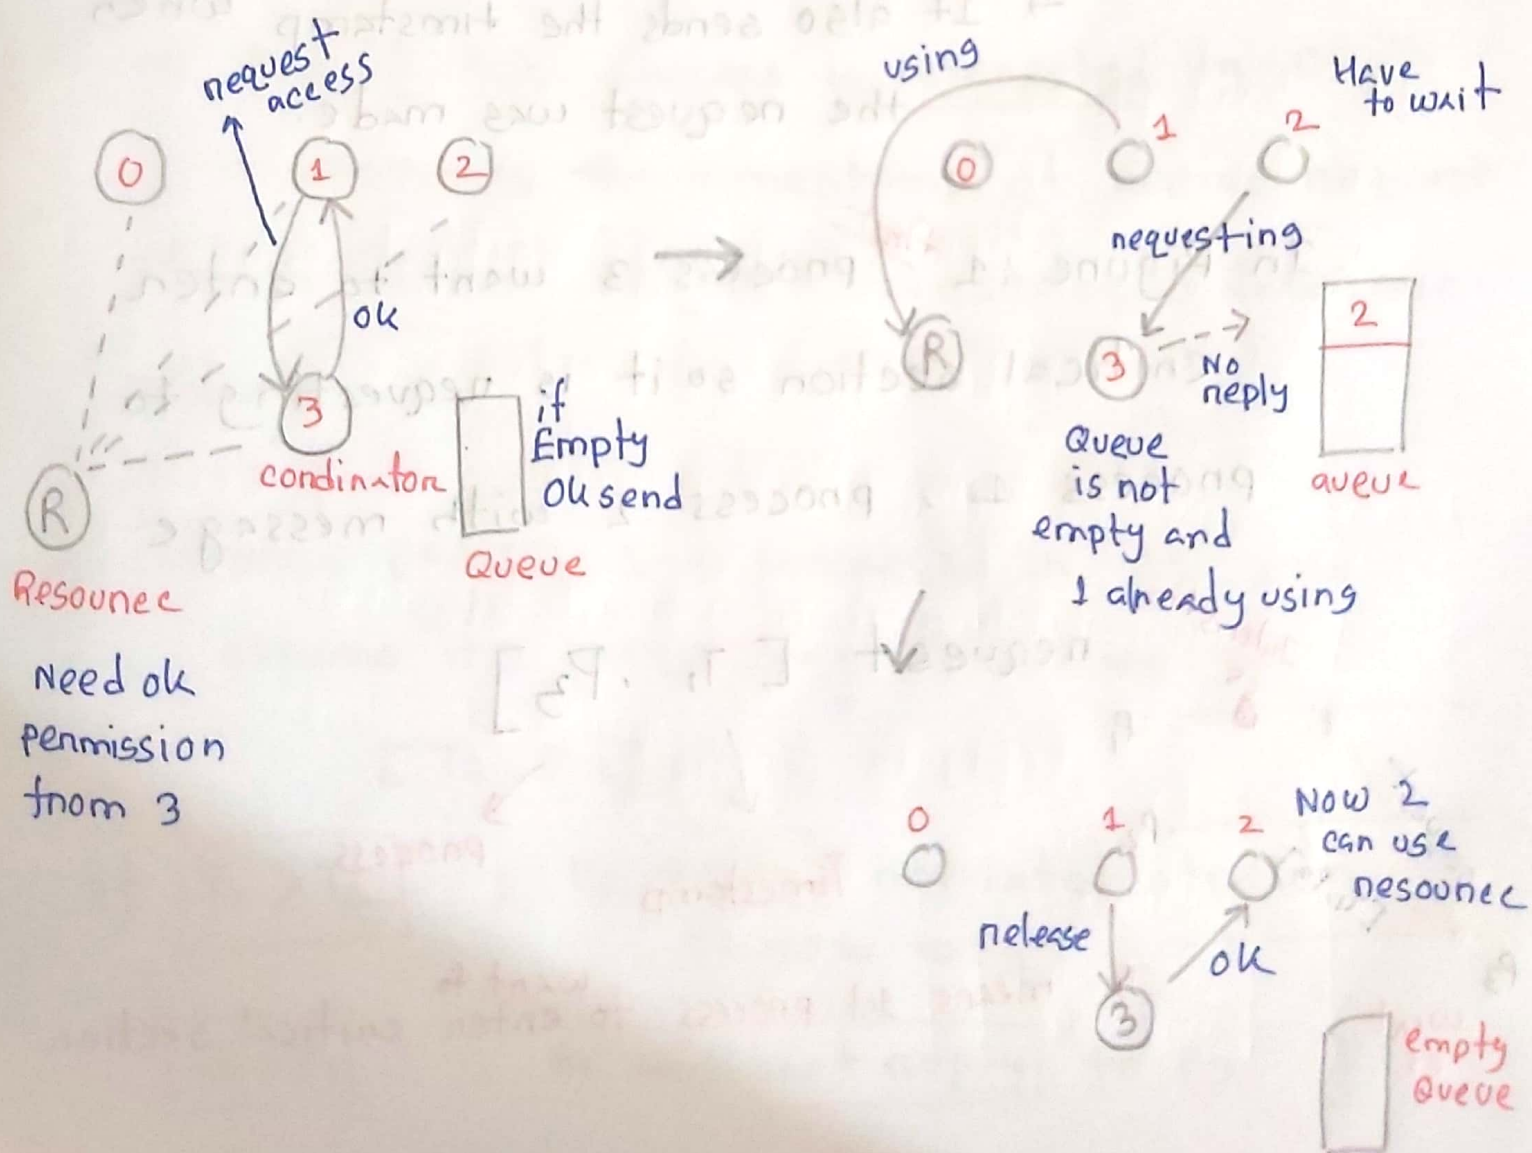 request
access
0
1
2
ok
3
cordinator
R
Resource
if
Empty
Ok send
Queue
Need ok
permission
from 3
using
0
1
2
Have
to wait
requesting
R
3
No
reply
2
Queue
Queue
is not
empty and
1 already using
0
1
2
Now 2
can use
resource
release
ok
3
empty
Queue